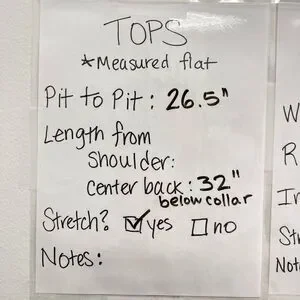 TOPS
*Measured flat
Pit to Pit: 26.5"
Length from
Shoulder:
center back: 32"
below collar
Stretch? ☑yes ☐no
Notes:
W
R
In
St
Not